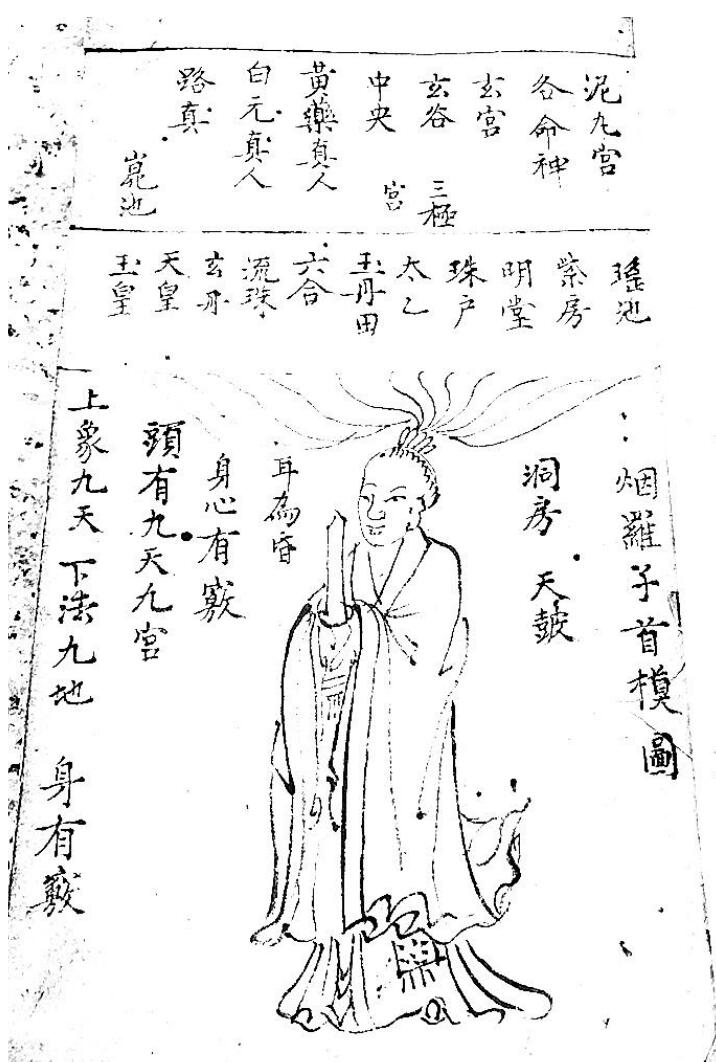 泥九宮
各命神
玄宮
玄谷 三極
中央 宮
黃藥真人
白元真人
路真
崑池
瑤池
紫房
明堂
珠戶
太乙
玉丹田
六合
流珠
玄丹
天皇
玉皇
烟羅子首模圖
洞房 天鼓
耳為
身心有竅
頭有九天九宮
上象九天 下法九地 身有竅